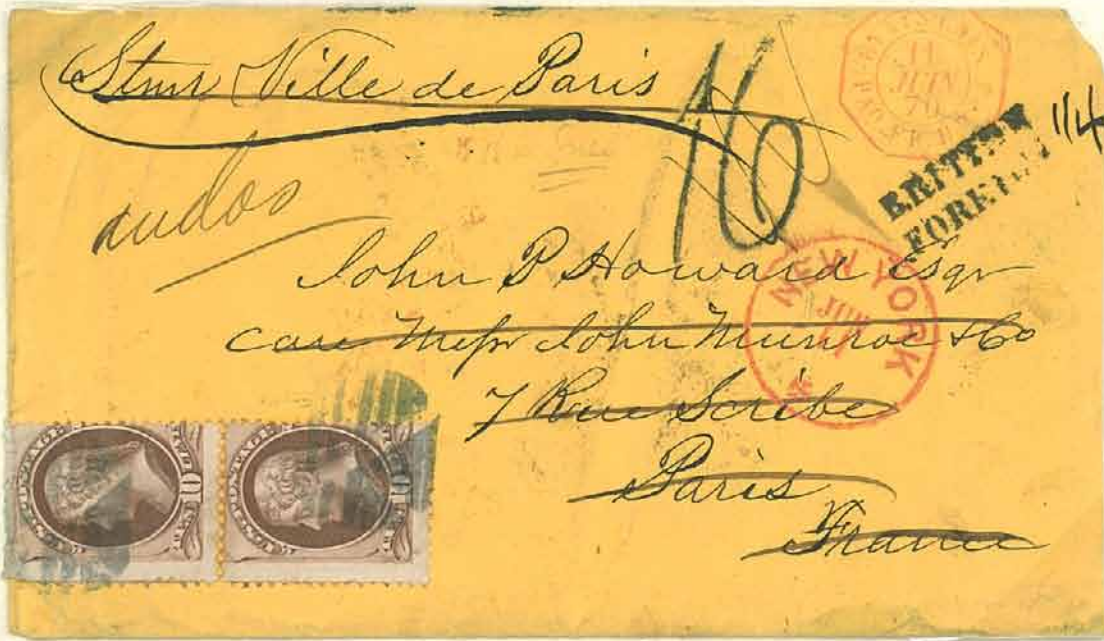 Stmr Ville de Paris
11
JUIN
70
16
1/4
BRITISH
FOREIGN
John P Howard Esqr
NEW YORK
care Messr John Munroe & Co
7 Rue Scribe
Paris
France
U.S. POSTAGE
10
U.S. POSTAGE
10